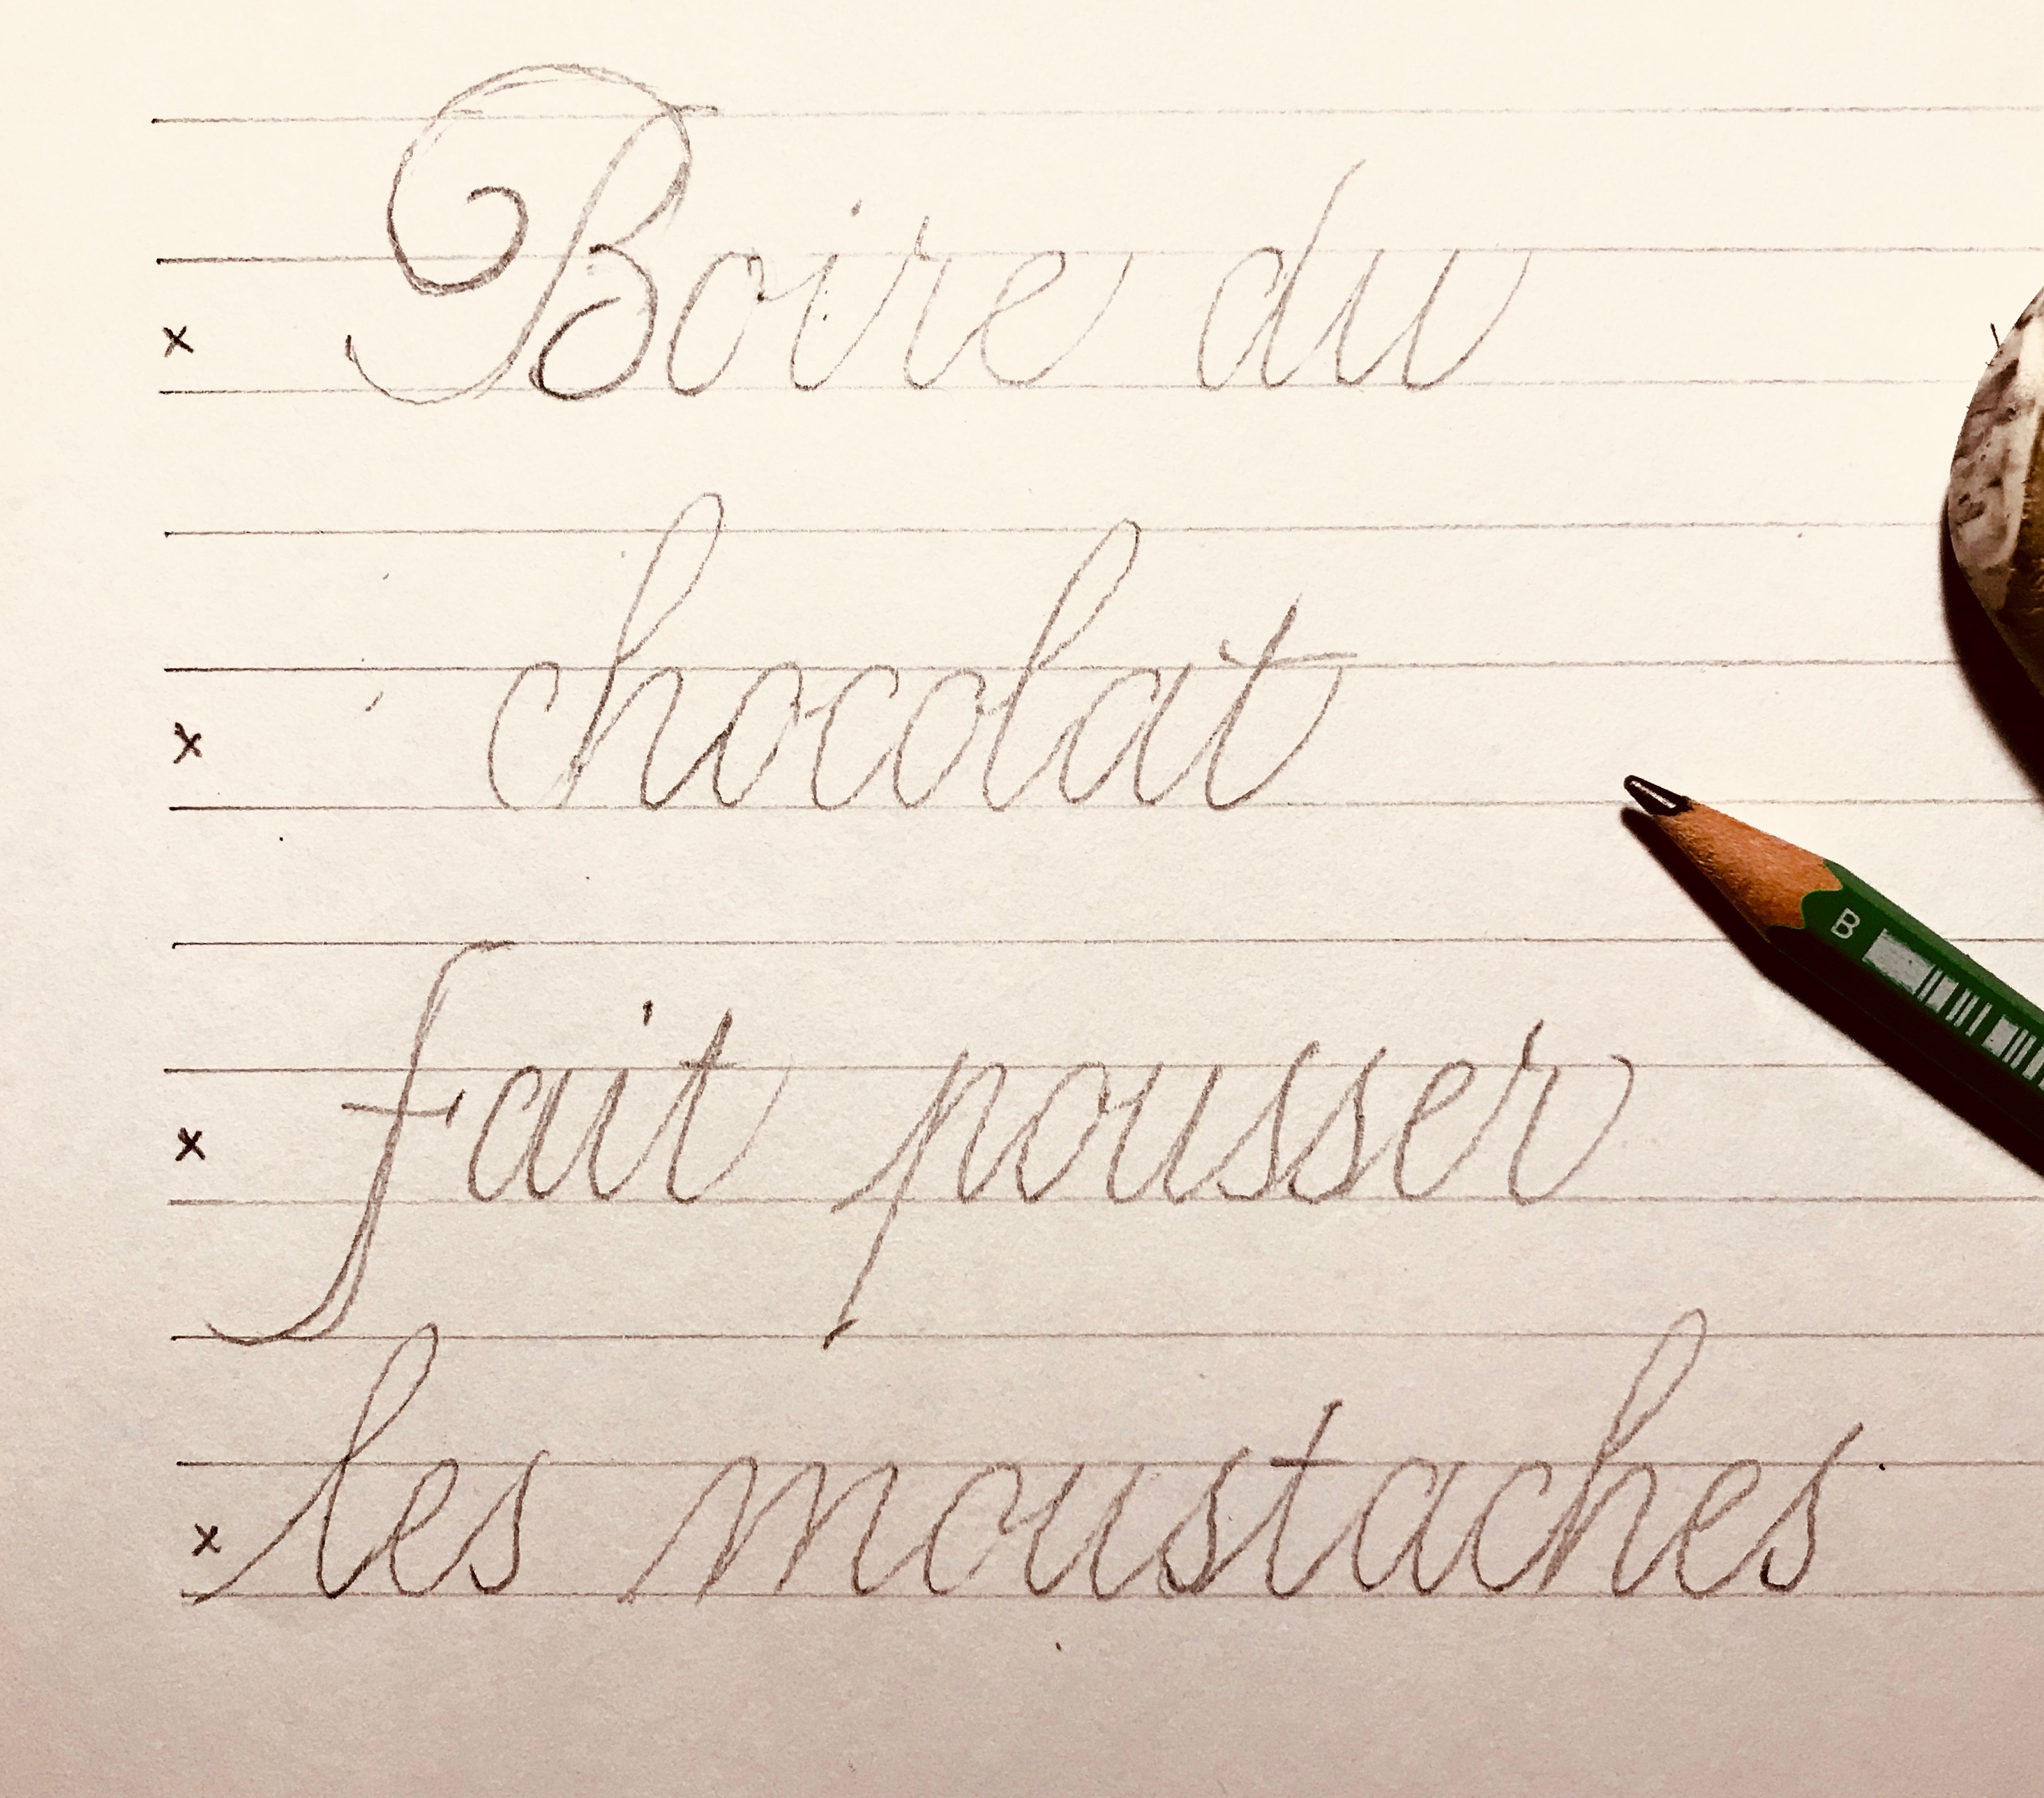 Boire du
x
chocolat
x
B
fait pousser
x
les moustaches
x